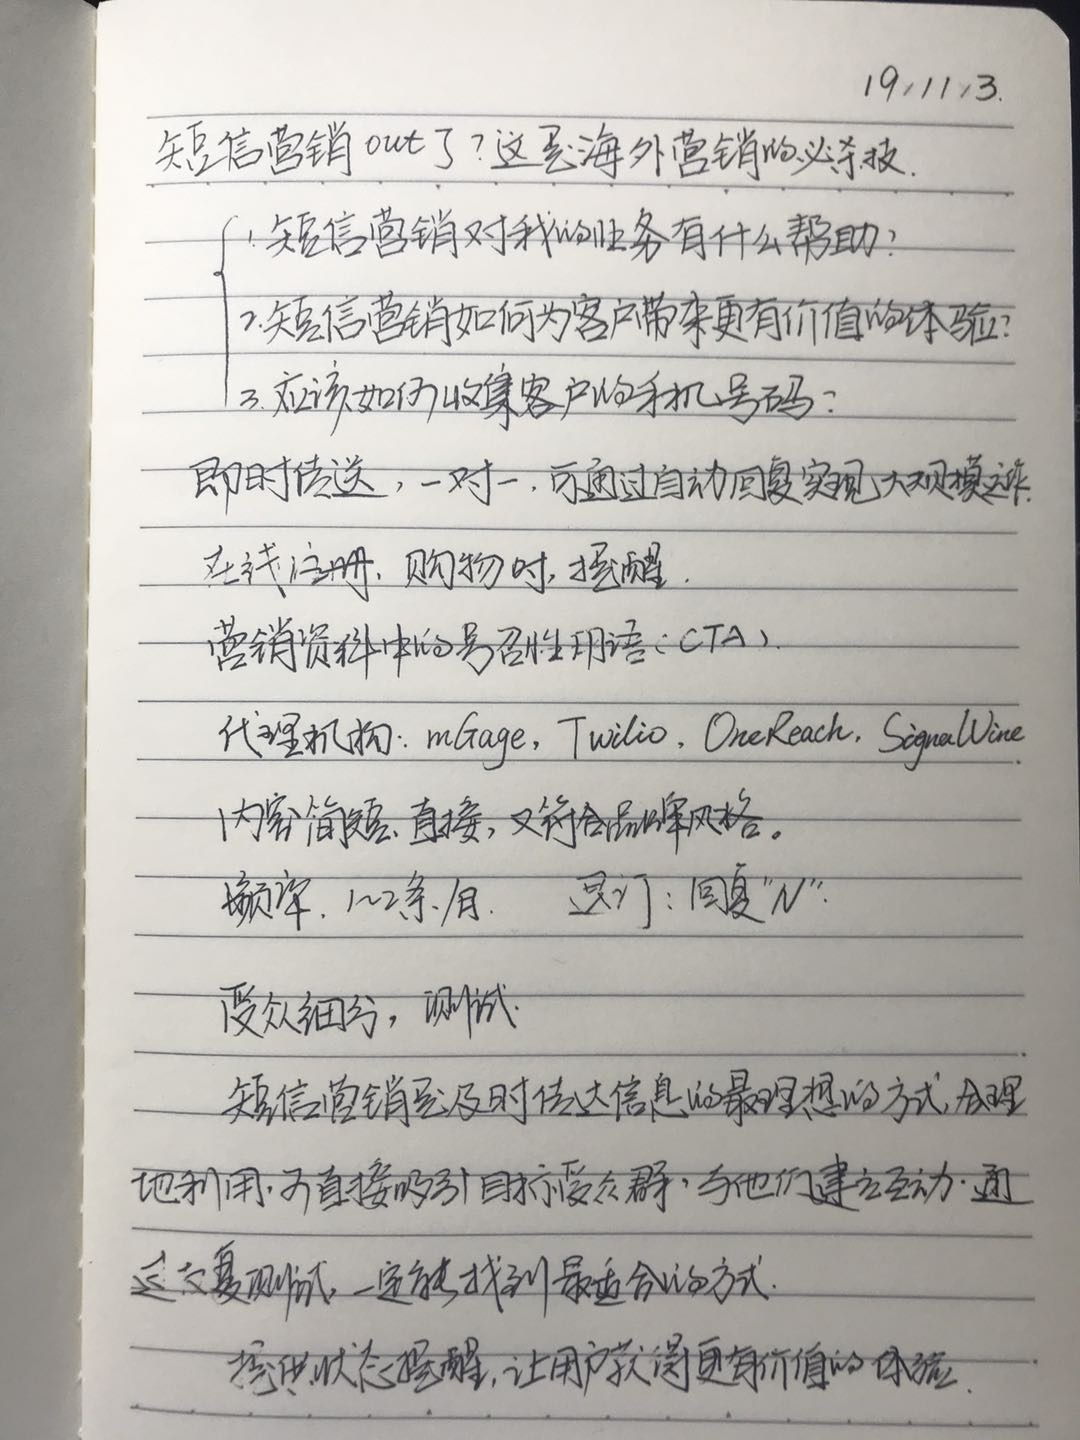 19/11/3.
短信营销out了？这是海外营销的必杀技.
1. 短信营销对我的业务有什么帮助？
2. 短信营销如何为客户带来更有价值的体验？
3. 应该如何收集客户的手机号码？
即时传送，一对一，可通过自动回复实现大规模运作.
在线注册，购物时，提醒.
营销资料中的号召性用语（CTA）.
代理机构：mGage, Twilio, OneReach, SignalWire.
内容简短、直接，又符合品牌风格。
频率. 1~2条/月. 退订：回复"N".
受众细分，测试.
短信营销是及时传达信息的最理想的方式，合理
地利用，可直接吸引目标受众群，与他们建立互动.通
过反复测试，一定能找到最适合的方式.
提供状态提醒，让用户获得更有价值的体验.